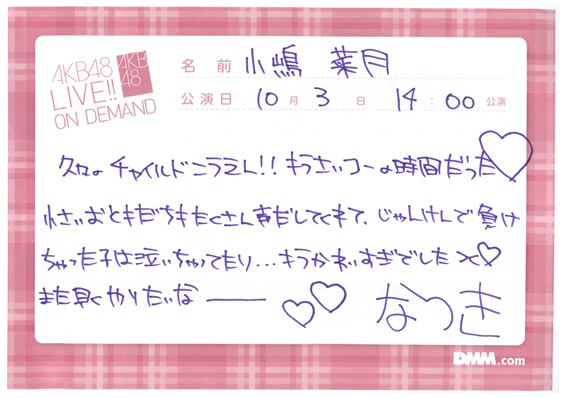 AKB48
LIVE!!
ON DEMAND
AKB
48
名前 小嶋 菜月
公演日 10月 3日 14:00 公演
久々のチャイルドニラミん!! もうさいコーの時間だった♡
小さいおともだちもたくさん来だしてくれて、じゃんけんで負け
ちゃった子は泣いちゃってたり...もうかわいすぎでした><♡
また早くやりたいなー
なつき
DMM.com